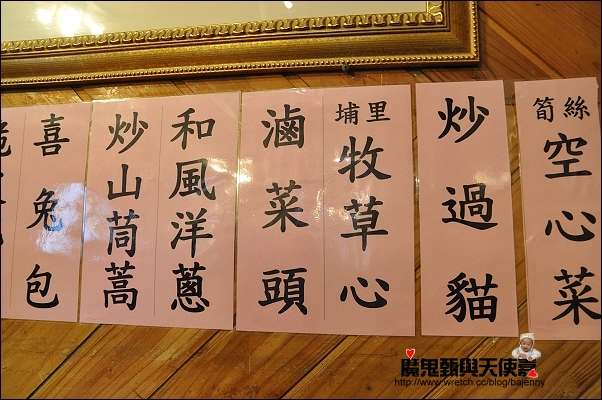 筍絲空心菜
炒過貓
埔里牧草心
滷菜頭
和風洋蔥
炒山茼蒿
喜兔包
魔鬼甄與天使嘉
http://www.wretch.cc/blog/bajenny